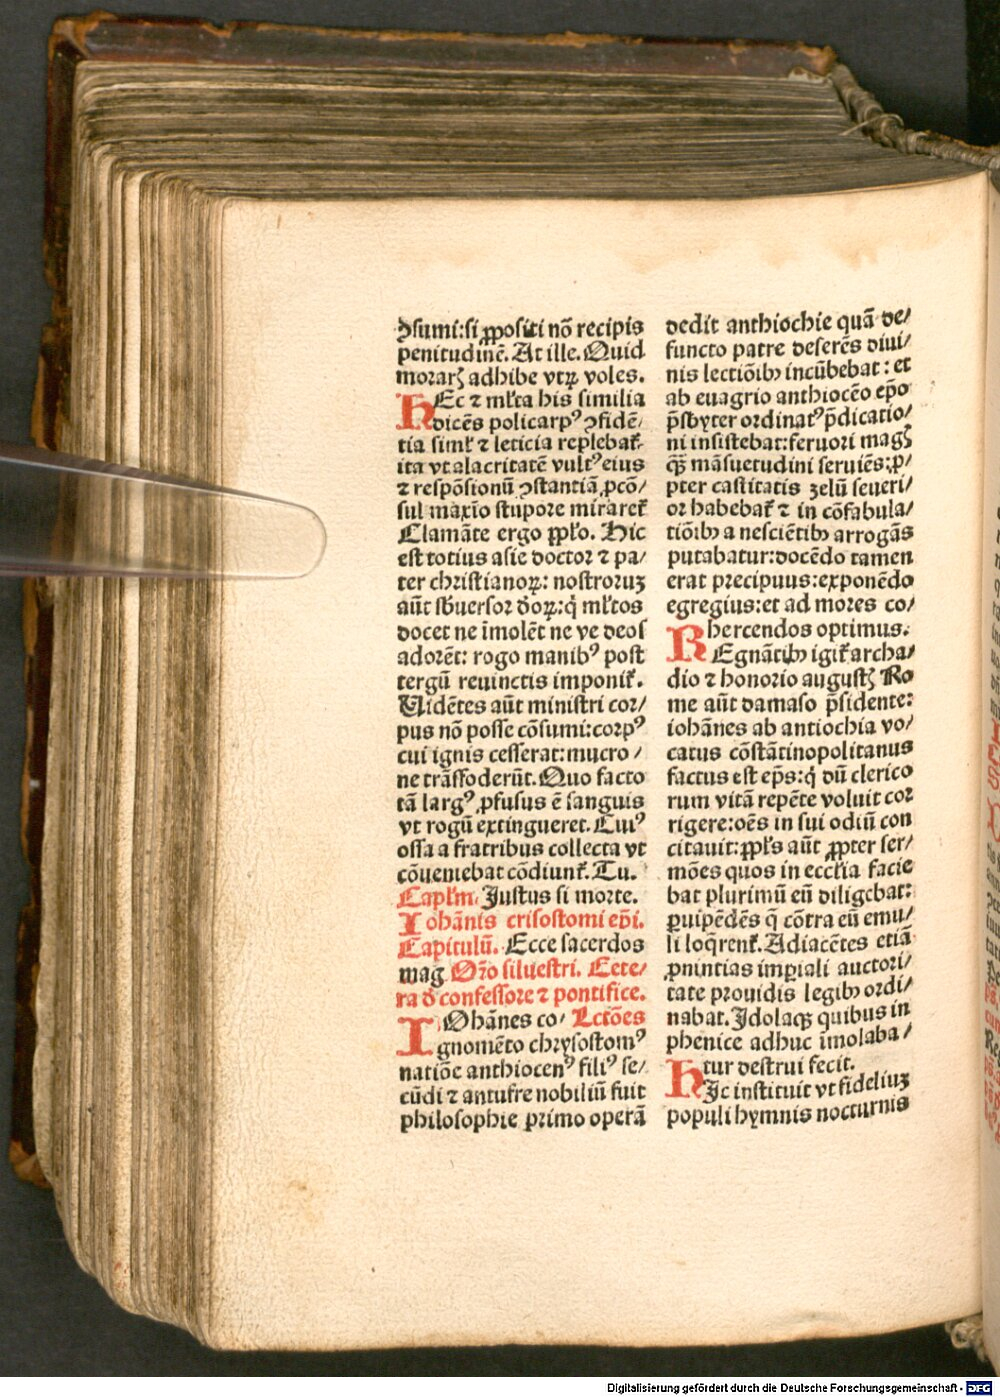 ꝯsumi:si ꝓpositi nō recipis
penitudinē. At ille. Quid
morarꝭ adhibe vtꝝ voles.
HEc ⁊ ml̃ta his similia
dicēs policarpꝰ ꝯfidē-
tia siml̃ ⁊ leticia replebat᷑
ita vt alacritatē vultꝰ eius
⁊ respōsionū ꝯstantiā ꝓcō/
sul maxīo stupore miraret᷑
Clamāte ergo ppl̃o. Hic
est totius asie doctor ⁊ pa/
ter christianoꝝ: nostroruꝫ
aūt sb̄uersor ꝺoꝝ:q̇ ml̃tos
docet ne īmolēt ne ve deos
adorēt: rogo manibꝰ post
tergū reuinctis imponit᷑.
Uidētes aūt ministri cor/
pus nō posse cōsumi:corpꝰ
cui ignis cesserat:mucro/
ne trāsfoderūt. Quo facto
tā largꝰ ꝓfusus ē sanguis
vt rogū extingueret. Cuiꝰ
ossa a fratribus collecta vt
cōueniebat cōdiunt᷑. Tu.
Capl̃m. Justus si morte.
Iohānis crisostomi ep̄i.
Capitulū. Ecce sacerdos
mag Or̄o siluestri. Cete/
ra ꝺ confessore ⁊ pontifice.
IOhānes co- Lctōes
gnomēto chrysostomꝰ
natiōe anthiocenꝰ filiꝰ se/
cūdi ⁊ antufre nobiliū fuit
philosophie primo operā
dedit anthiochie quā de/
functo patre deserēs diui/
nis lectiōibꝫ incūbebat: et
ab euagrio anthiocēo ep̄o
p̄sbyter ordinatꝰ p̄dicatio/
ni insistebat:feruori magꝭ
qꝫ̄ māsuetudini seruiēs:ꝓ/
pter castitatis zelū seueri/
or habebat᷑ ⁊ in cōfabula/
tiōibꝫ a nesciētibꝫ arrogās
putabatur:docēdo tamen
erat precipuus:exponēdo
egregius:et ad mores co/
hercendos optimus.
REgnātibꝫ igit᷑ archa/
dio ⁊ honorio augustꝭ Ro
me aūt damaso p̄sidente:
iohānes ab antiochia vo/
catus cōstātinopolitanus
factus est ep̄s:q̇ dū clerico
rum vitā repēte voluit cor
rigere:oēs in sui odiū con
citauit:ppl̃s aūt ꝓpter ser/
mōes quos in eccl̃ia facie
bat plurimū eū diligebat:
ꝑuipēdēs q̇ cōtra eū emu/
li loq̄rent᷑. Adiacētes etiā
ꝓuintias imꝑiali auctori/
tate prouidis legibꝫ ordi/
nabat. Idolaqꝫ quibus in
phenice adhuc īmolaba/
tur destrui fecit.
HIc instituit vt fideliuꝫ
populi hymnis nocturnis
Digitalisierung gefördert durch die Deutsche Forschungsgemeinschaft - DFG